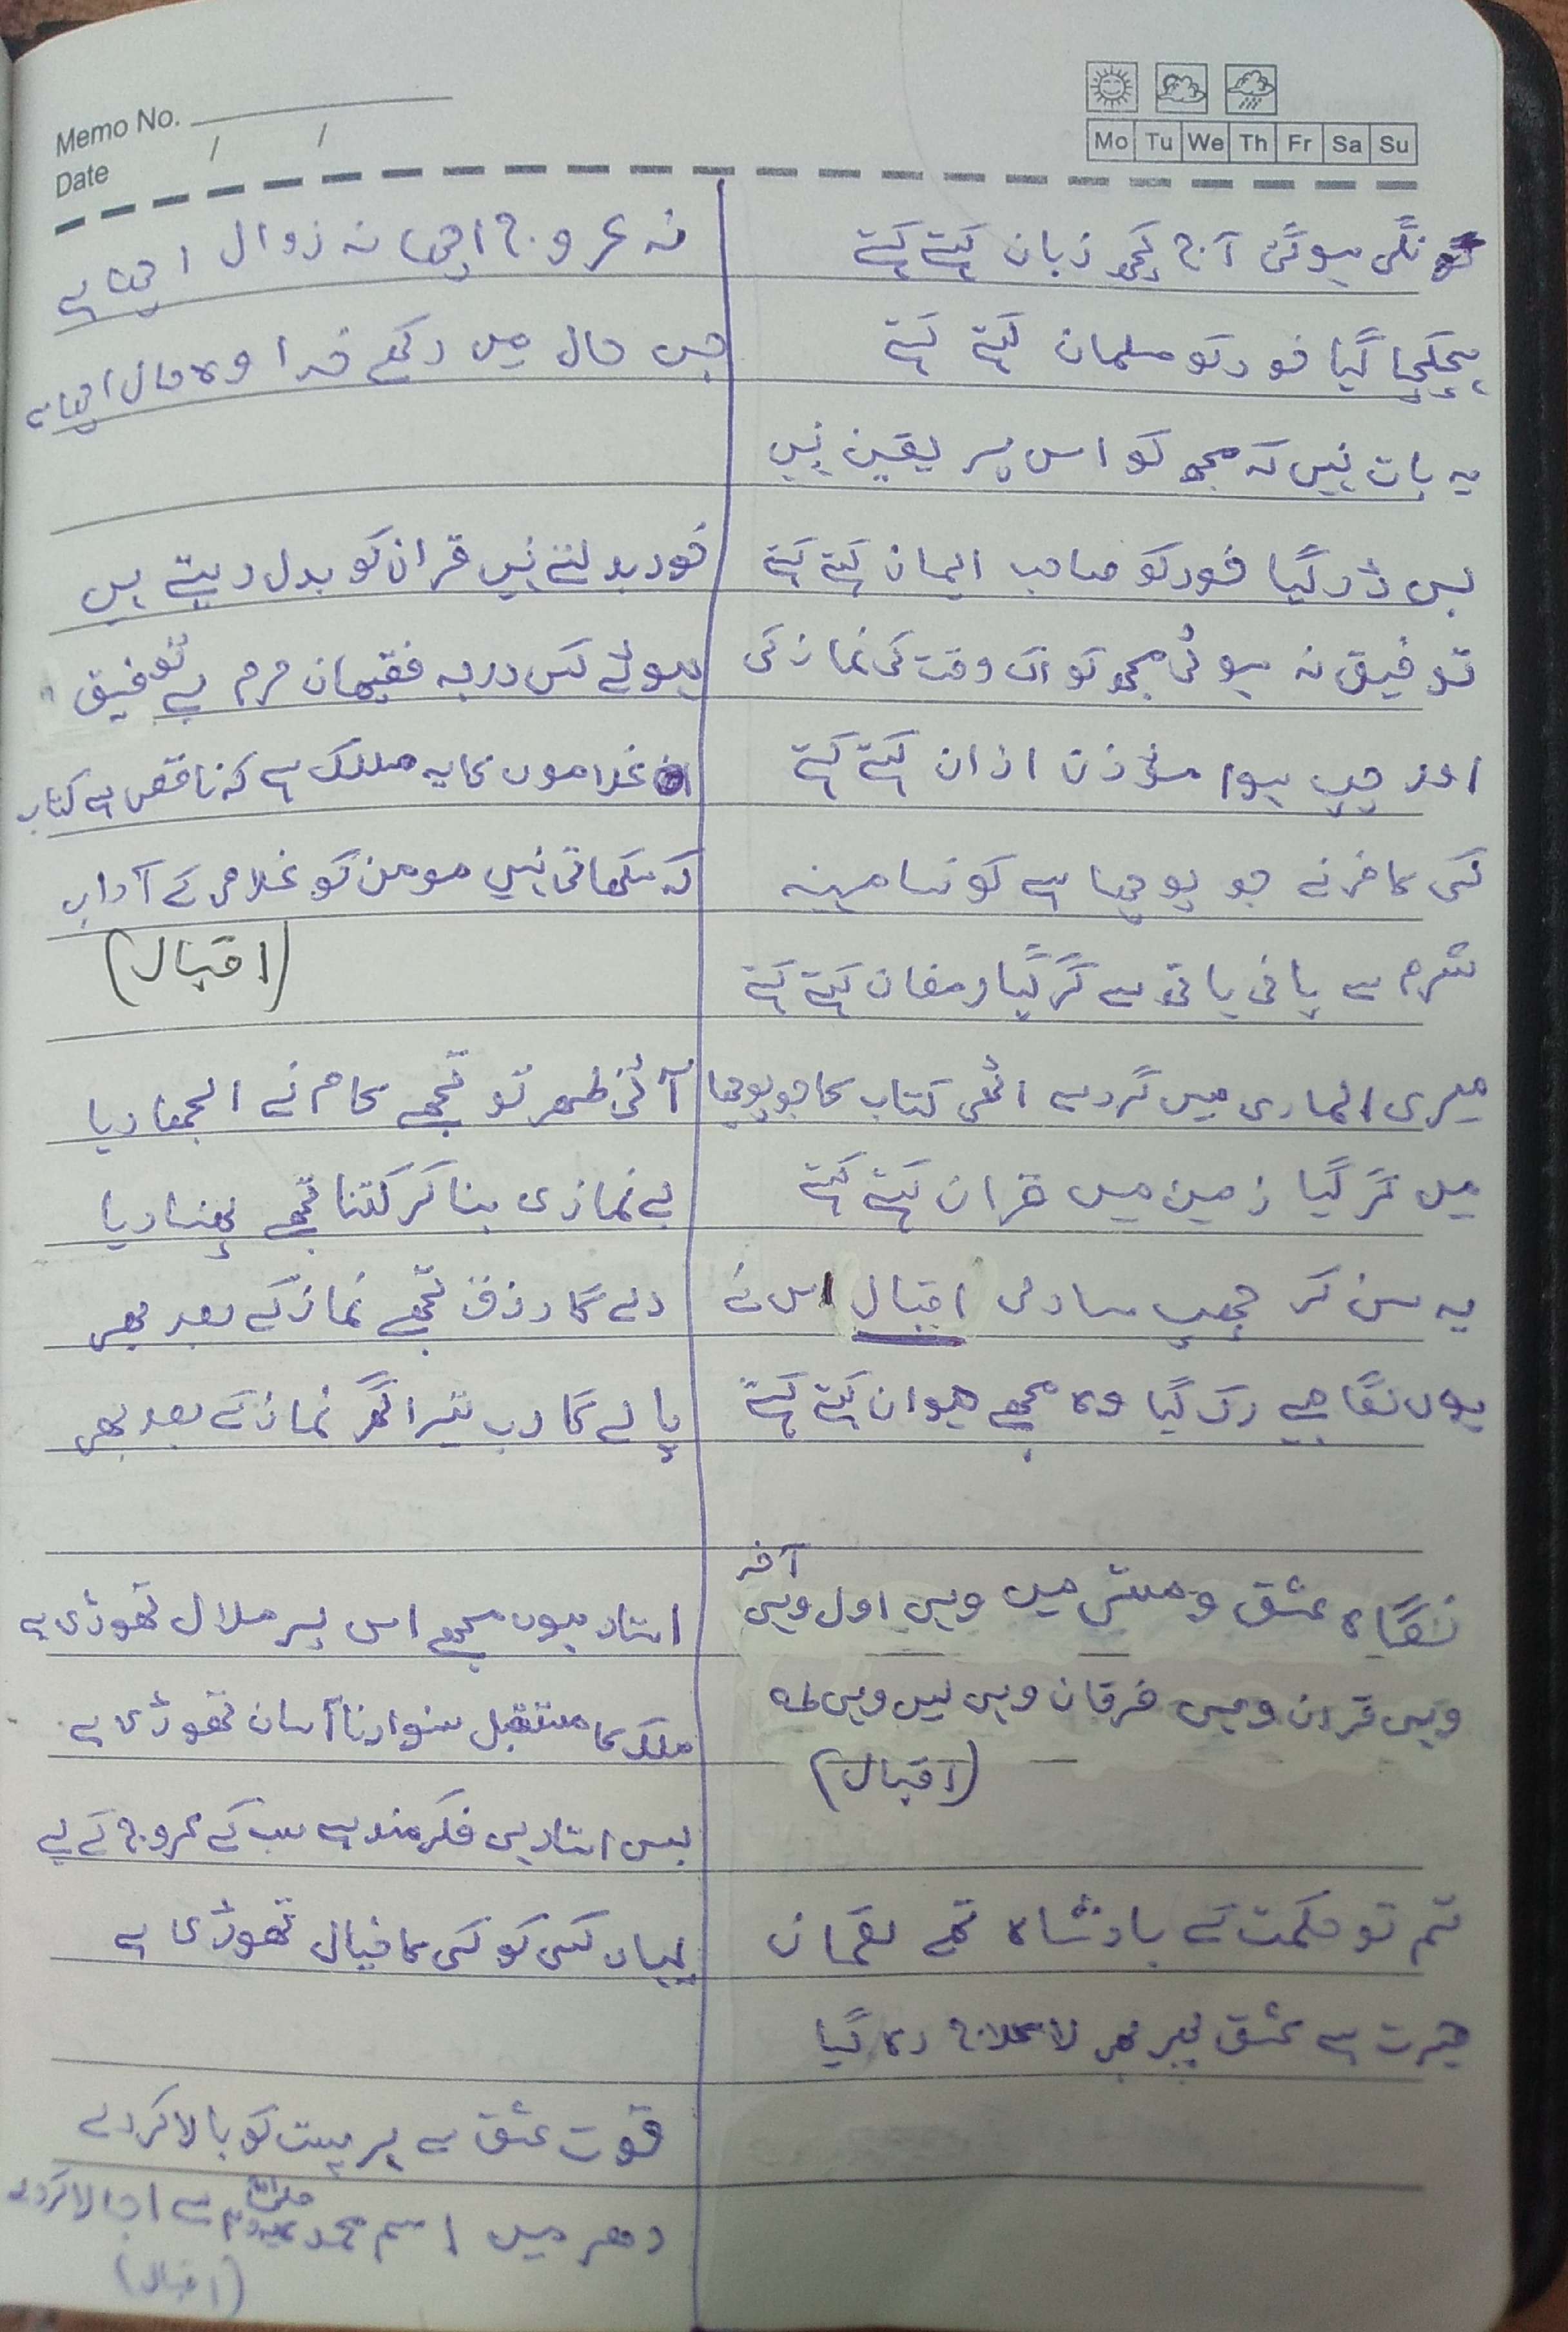 Memo No.
Date / /
Mo Tu We Th Fr Sa Su
گونگی ہوگئی آج کچھ زبان کہتے کہتے
ہچکچا گیا خود کو مسلمان کہتے کہتے
یہ بات نہیں کہ مجھ کو اس پر یقین نہیں
بس ڈر گیا خود کو صاحب ایمان کہتے کہتے
توفیق نہ ہوئی مجھ کو اک وقت کی نماز کی
اور چپ ہوا مؤذن اذان کہتے کہتے
کسی کافر نے جو پوچھا ہے کونسا مہینہ
شرم سے پانی پانی سے گر گیا رمضان کہتے کہتے
میری الماری میں گرد سے اٹھی کتاب کا جو پوچھا
میں گر گیا زمین میں قران کہتے کہتے
یہ سن کر چپ سادلی اقبال اس نے
یوں لگا جیسے رک گیا وہ مجھے حیوان کہتے کہتے
نگاہ عشق و مستی میں وہی اول وہی آخر
وہی قران وہی فرقان وہی یس وہی طہ
(اقبال)
تم تو حکمت کے بادشاہ تھے لقمان
حیرت ہے عشق پہر بھی لا علاج رہ گیا
نہ عروج اچھا نہ زوال اچھا ہے
جس حال میں رکھے خدا وہ حال اچھا ہے
خود بدلتے نہیں قران کو بدل دیتے ہیں
ہوئے کس درجہ فقیہان حرم بے توفیق
ان غلاموں کا یہ مسلک ہے کہ ناقص ہے کتاب
کہ سکھاتی نہیں مومن کو غلامی کے آداب
(اقبال)
آئی ظہر تو تجھے کام نے الجھا دیا
بے نمازی بنا کر کتنا تجھے پھنسا دیا
دے گا رزق تجھے نماز کے بعد بھی
پالے گا رب تیرا گھر نماز کے بعد بھی
استاد ہوں مجھے اس پر ملال تھوڑی ہے
ملک کا مستقبل سنوارنا آسان تھوڑی ہے
بس استاد ہی فکر مند ہے سب کے عروج کے لیے
یہاں کسی کو کسی کا خیال تھوڑی ہے
قوت عشق سے ہر پست کو بالا کردے
دھر میں اسم محمد صلی اللہ علیہ وسلم سے اجالا کردے
(اقبال)